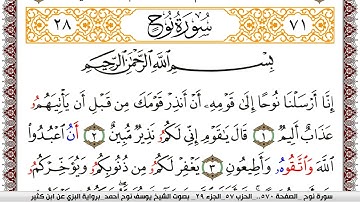 ٧١ سُورَةُ نُوحٍ ٢٨
بِسْمِ ٱللَّهِ ٱلرَّحْمَٰنِ ٱلرَّحِيمِ
إِنَّا أَرْسَلْنَا نُوحًا إِلَىٰ قَوْمِهِۦ أَنْ أَنذِرْ قَوْمَكَ مِن قَبْلِ أَن يَأْتِيَهُمُۥ
عَذَابٌ أَلِيمٌ ١ قَالَ يَٰقَوْمِ إِنِّي لَكُمُۥ نَذِيرٌ مُّبِينٌ ٢ أَنُ ٱعْبُدُوا۟
ٱللَّهَ وَٱتَّقُوهُۥ وَأَطِيعُونِ ٣ يَغْفِرْ لَكُمُۥ مِن ذُنُوبِكُمُۥ وَيُؤَخِّرْكُمُۥ
سورة نوح _ الصفحة ٥٧٠ ... الحزب ٥٧ الجزء ٢٩ .. بصوت الشيخ يوسف نوح أحمد برواية البزي عن ابن كثير